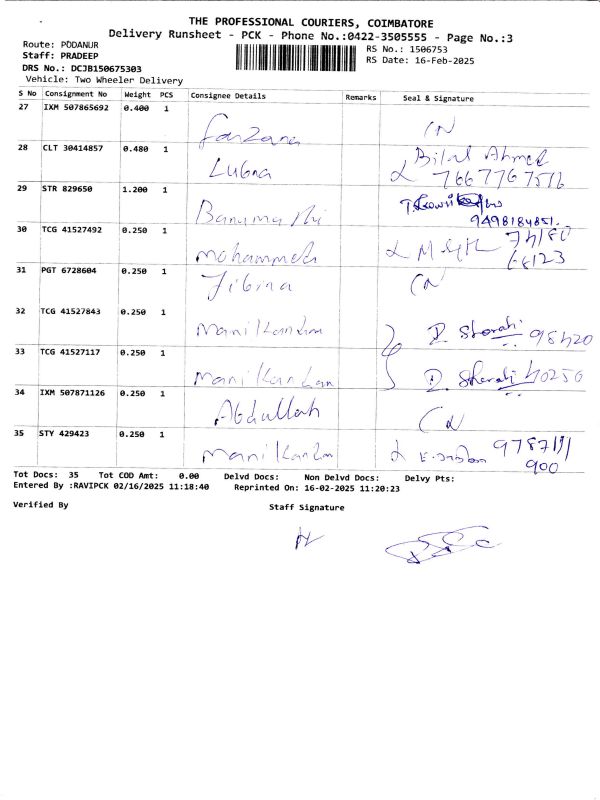 THE PROFESSIONAL COURIERS, COIMBATORE
Delivery Runsheet - PCK - Phone No.:0422-3505555 - Page No.:3
Route: PODANUR
Staff: PRADEEP
DRS No.: DCJB150675303
Vehicle: Two Wheeler Delivery
RS No.: 1506753
RS Date: 16-Feb-2025
S No Consignment No Weight PCS Consignee Details Remarks Seal & Signature
27 IXM 507865692 0.400 1 Farzana
28 CLT 30414857 0.480 1 Lubna Bilal Ahmed
7667767516
29 STR 829650 1.200 1 Banumathi
9498184851.
30 TCG 41527492 0.250 1 Mohammed
68123
31 PGT 6728604 0.250 1 Jibina
32 TCG 41527843 0.250 1 Manikandan D. Sherati 98420
33 TCG 41527117 0.250 1 Manikandan D. Sherati 40250
34 IXM 507871126 0.250 1 Abdullah
35 STY 429423 0.250 1 Manikandan
900
Tot Docs: 35 Tot COD Amt: 0.00 Delvd Docs: Non Delvd Docs: Delvy Pts:
Entered By :RAVIPCK 02/16/2025 11:18:40 Reprinted On: 16-02-2025 11:20:23
Verified By Staff Signature